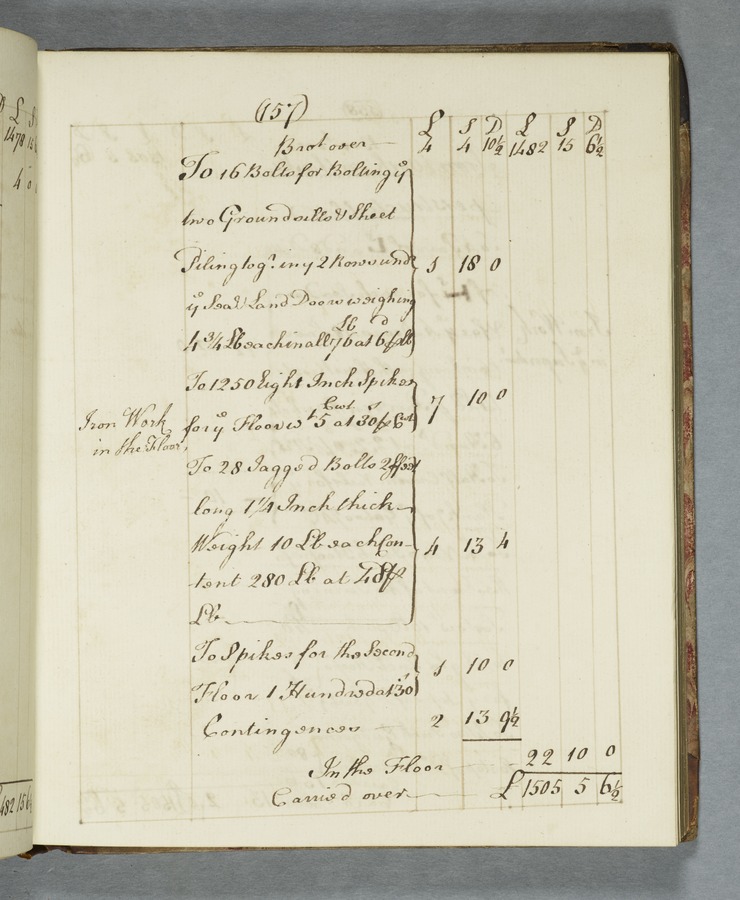 D L S
1478 15
4 0
482 15 6½
(157)
L S D L S D
Brot over 4 4 10½ 1482 15 6½
To 16 Bolts for Bolting ye
two Groundsills & Sheet
Pileing togr. in ye 2 Rows und
ye Sea & Land Doors weighing 1 18 0
Lb d
4 ¾ Lb each in all 76 at 6 p Lb
To 1250 Eight Inch Spikes
Cwt s
for ye Floor wt 5 at 30 p Ct 7 10 0
Iron Work
in the Floor
To 28 Jagged Bolts 2 feet
long 1¼ Inch thick
Weight 10 Lb each Con-
tent 280 Lb at 4d p 4 13 4
Lb
To Spikes for the Second
Floor 1 Hundred at 30s 1 10 0
Contingences 2 13 9½
In the Floor 22 10 0
Carried over £ 1505 5 6½